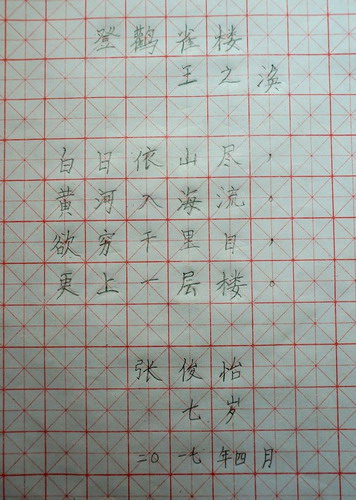 登鹳雀楼
王之涣
白日依山尽，
黄河入海流。
欲穷千里目，
更上一层楼。
张俊怡
七岁
二〇一七年四月